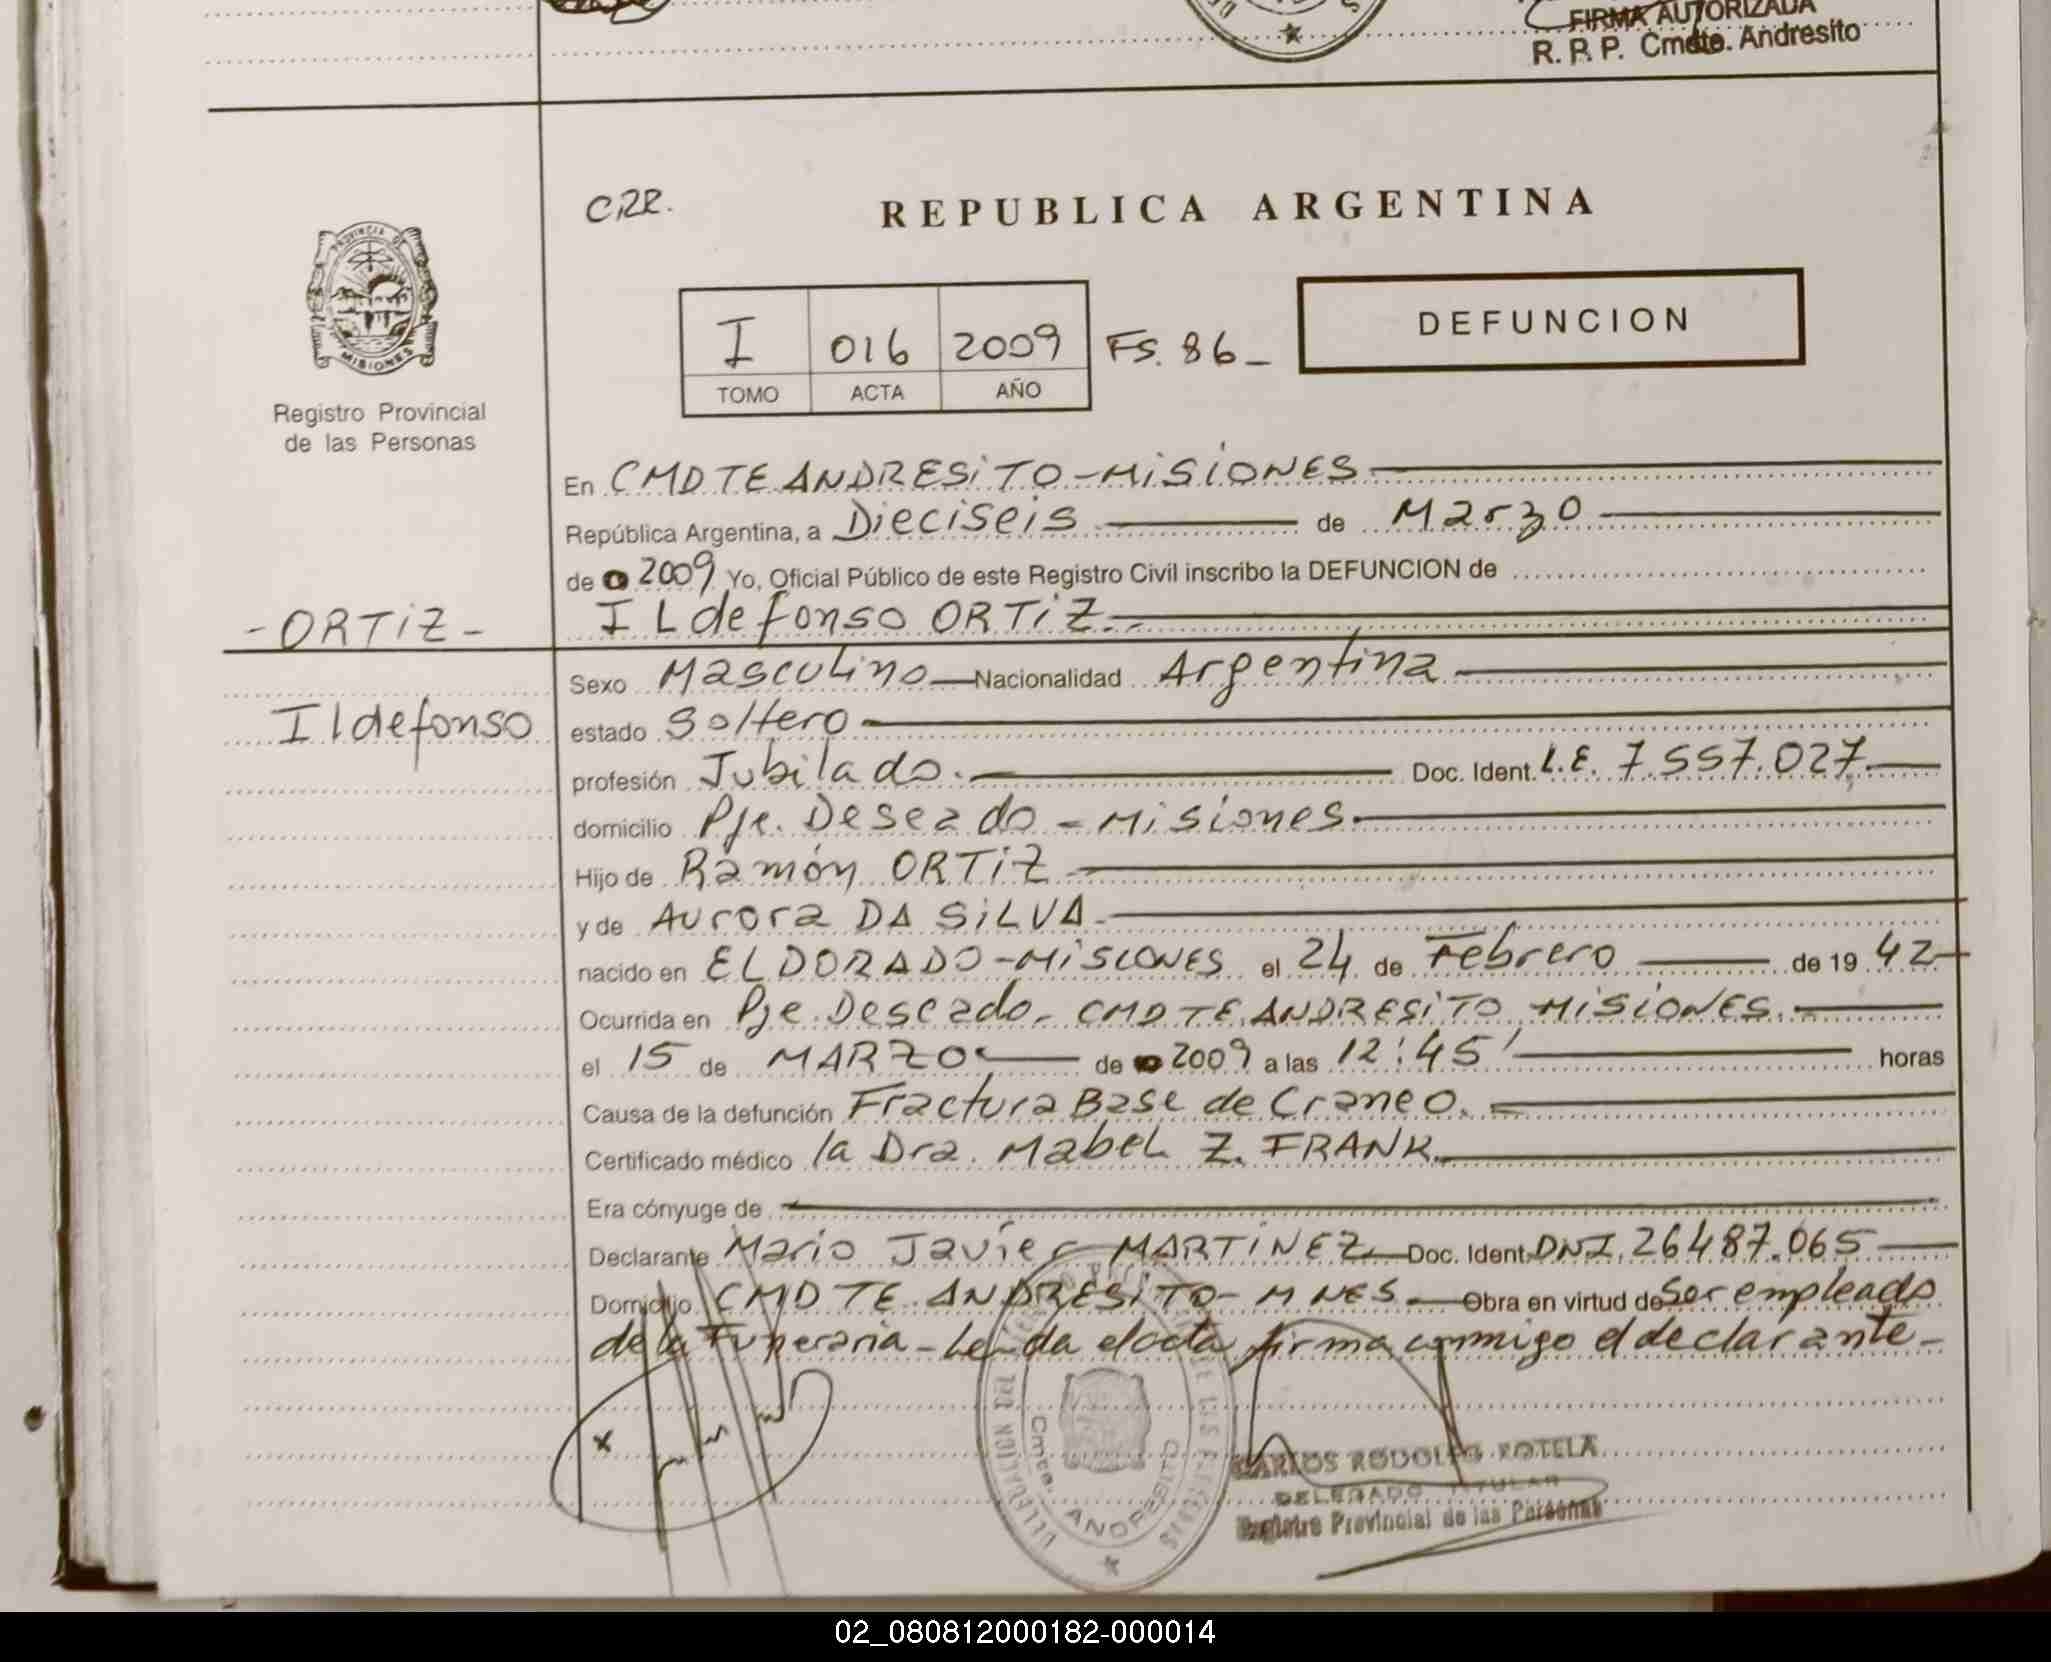 FIRMA AUTORIZADA
R. P. P. Cmdte. Andresito
CRR.
REPUBLICA ARGENTINA
PROVINCIA DE
MISIONES
Registro Provincial
de las Personas
I 016 2009 FS. 86_
TOMO ACTA AÑO
DEFUNCION
En CMDTE ANDRESiTO-MiSiONES
República Argentina, a Dieciseis de Marzo
de 2009 Yo, Oficial Público de este Registro Civil inscribo la DEFUNCION de
-ORTiZ-
ILdefonso ORTiZ.-
Sexo Masculino Nacionalidad Argentina
Ildefonso
estado Soltero
profesión Jubilado. Doc. Ident. L.E. 7.557.027
domicilio Pje. Deseado - Misiones.
Hijo de Ramón ORTiZ
y de Aurora DA SiLVA
nacido en ELDORADO-MiSiONES el 24 de Febrero de 19 42
Ocurrida en Pje. Deseado. CMDTE ANDRESiTO MiSiONES.
el 15 de MARZO de 2009 a las 12:45' horas
Causa de la defunción Fractura Base de Craneo.
Certificado médico la Dra. Mabel Z. FRANK
Era cónyuge de
Declarante Mario Javier MARTiNEZ Doc. Ident. DNI. 26487.065
Domicilio CMDTE ANDRESiTO-MNES Obra en virtud de Ser empleado
de la Funeraria - Leida el acta firma conmigo el declarante -
x
Cmte. ANDRESITO
CARLOS RODOLFO ROTELA
DELEGADO TITULAR
Registro Provincial de las Personas
02_080812000182-000014